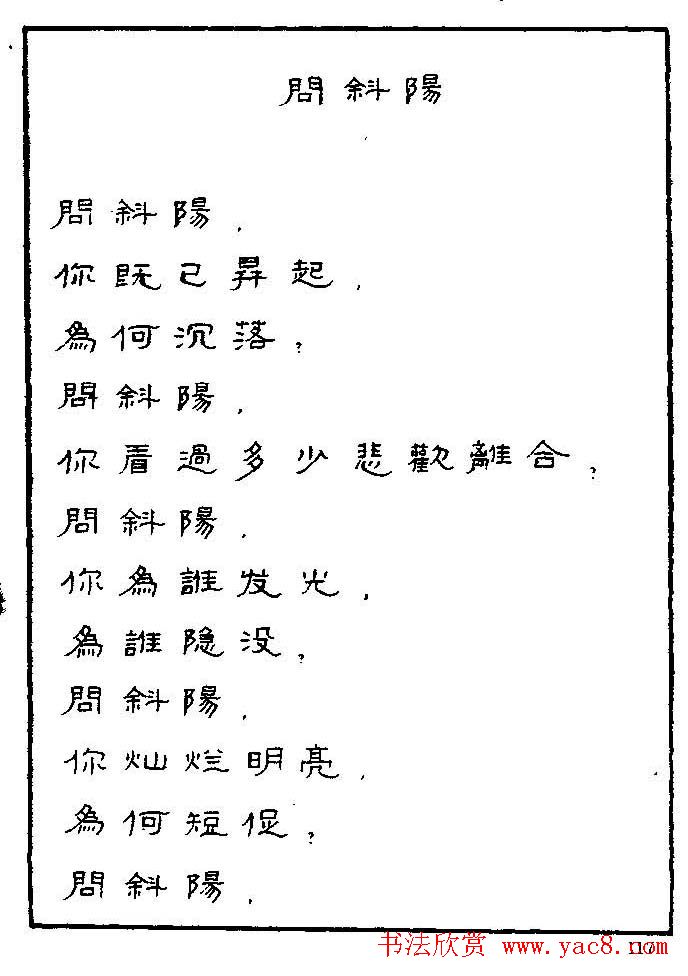 問斜陽
問斜陽，
你既已昇起，
為何沉落？
問斜陽，
你看過多少悲歡離合？
問斜陽，
你為誰发光，
為誰隐没？
問斜陽，
你灿烂明亮，
為何短促？
問斜陽，
书法欣赏 www.yac8.com